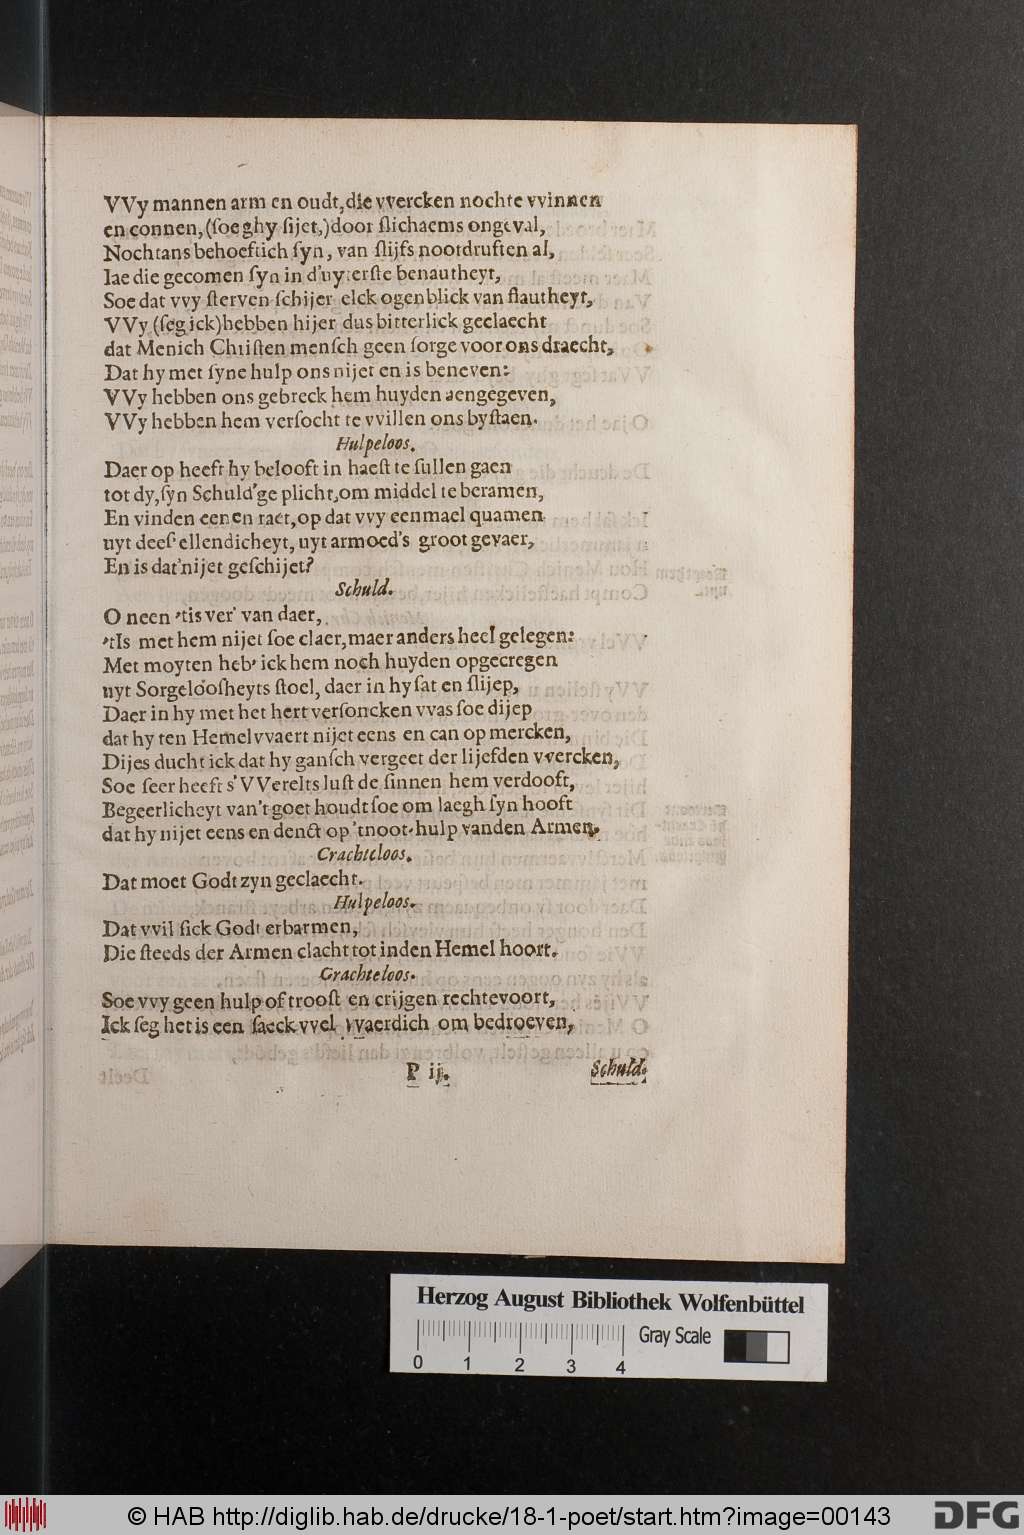 VVy mannen arm en oudt,die vvercken nochte vvinnen
en connen,(ſoe ghy ſijet,)door ſlichaems ongeval,
Nochtans behoeftich ſyn, van ſlijfs nootdruften al,
Iae die gecomen ſyn in d'uyterſte benautheyt,
Soe dat vvy ſterven ſchijer elck ogenblick van flautheyt,
VVy (ſeg ick)hebben hijer dus bitterlick geclaecht
dat Menich Chriſten menſch geen ſorge voor ons draecht,
Dat hy met ſyne hulp ons nijet en is beneven:
VVy hebben ons gebreck hem huyden aengegeven,
VVy hebben hem verſocht te vvillen ons byſtaen.
Hulpeloos.
Daer op heeft hy belooft in haeſt te ſullen gaen
tot dy,ſyn Schuld'ge plicht,om middel te beramen,
En vinden eenen raet,op dat vvy eenmael quamen
uyt deeſ' ellendicheyt, uyt armoed's groot gevaer,
En is dat'nijet geſchijet?
Schuld.
O neen 'tis ver' van daer,
'tIs met hem nijet ſoe claer,maer anders heel gelegen:
Met moyten heb' ick hem noch huyden opgecregen
uyt Sorgeloosheyts ſtoel, daer in hy ſat en ſlijep,
Daer in hy met het hert verſoncken vvas ſoe dijep
dat hy ten Hemelvvaert nijet eens en can op mercken,
Dijes ducht ick dat hy ganſch vergeet der lijefden vvercken,
Soe ſeer heeft s'VVerelts luſt de ſinnen hem verdooft,
Begeerlicheyt van't goet houdt ſoe om laegh ſyn hooft
dat hy nijet eens en denct op 'tnoot-hulp vanden Armen.
Crachteloos.
Dat moet Godt zyn geclaecht.
Hulpeloos.
Dat vvil ſick Godt erbarmen,
Die ſteeds der Armen clacht tot inden Hemel hoort.
Crachteloos.
Soe vvy geen hulp of trooſt en crijgen rechtevoort,
Ick ſeg het is een ſaeck vvel vvaerdich om bedroeven,
P ij.
Schuld.
Herzog August Bibliothek Wolfenbüttel
Gray Scale
0 1 2 3 4
© HAB http://diglib.hab.de/drucke/18-1-poet/start.htm?image=00143
DFG